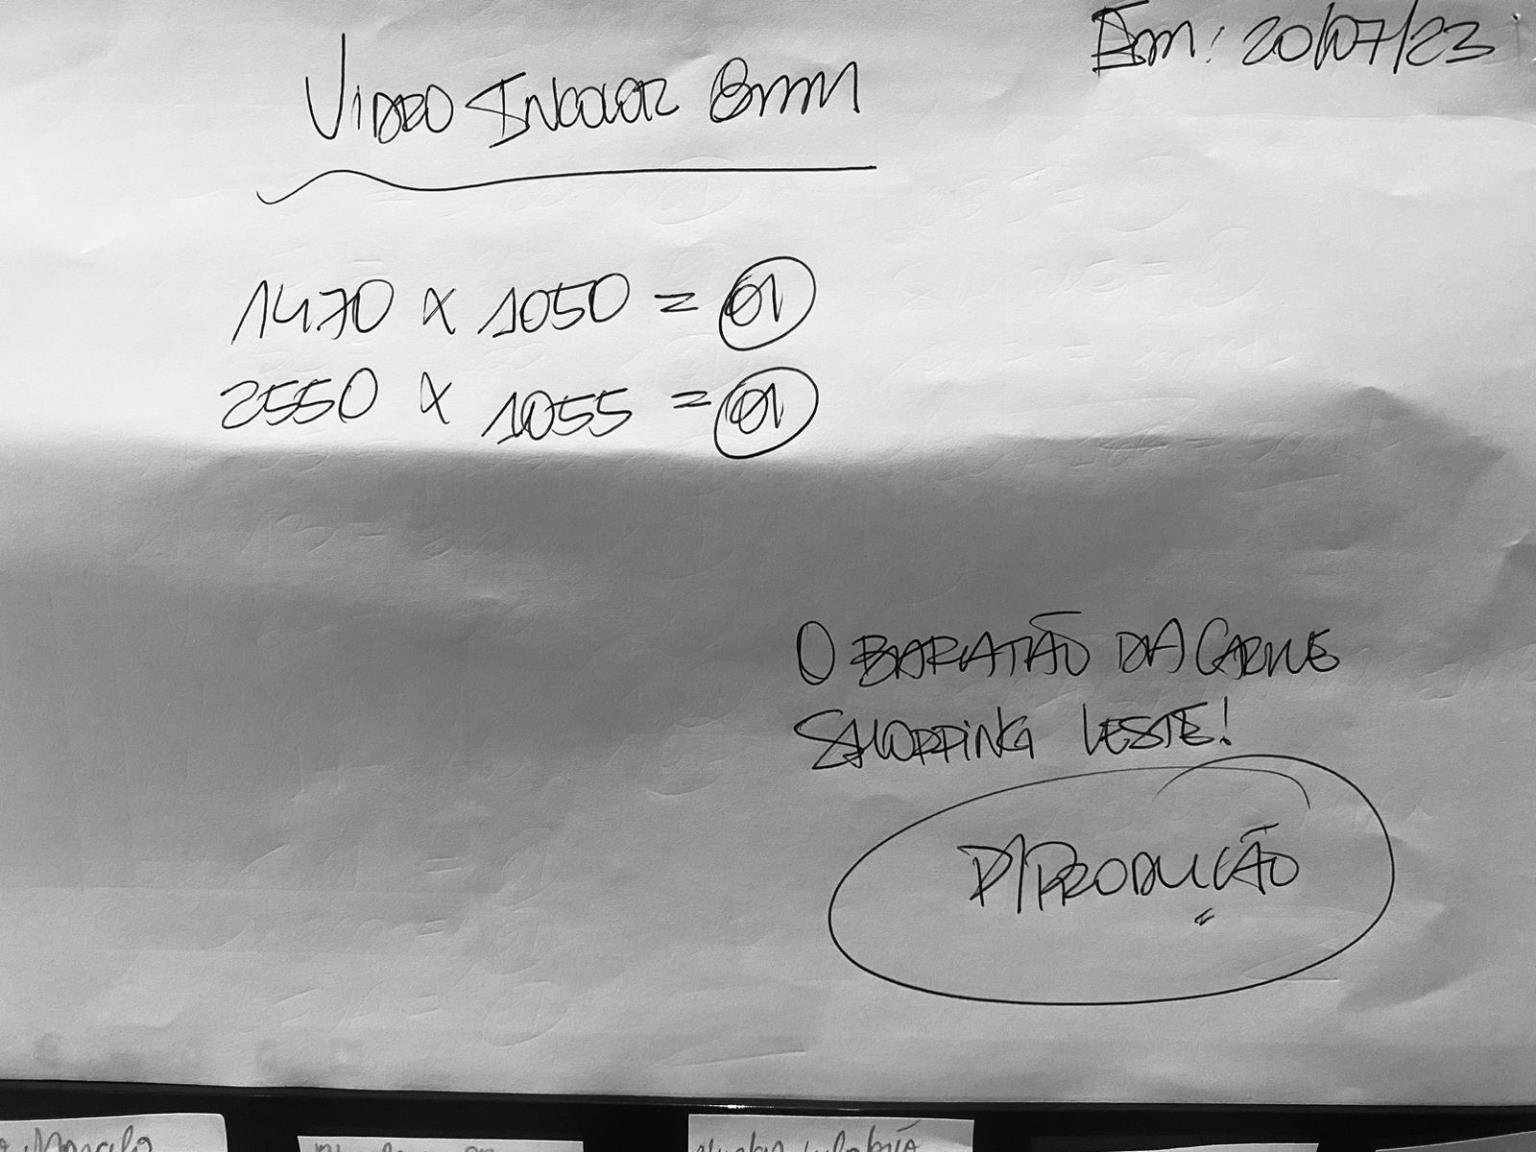 Em: 20/07/23
VIDRO INCOLOR 8mm
1470 x 1050 = 01
2550 x 1055 = 01
O BARATÃO DA CARNE
SHOPPING LESTE!
P/PRODUÇÃO
Marcelo